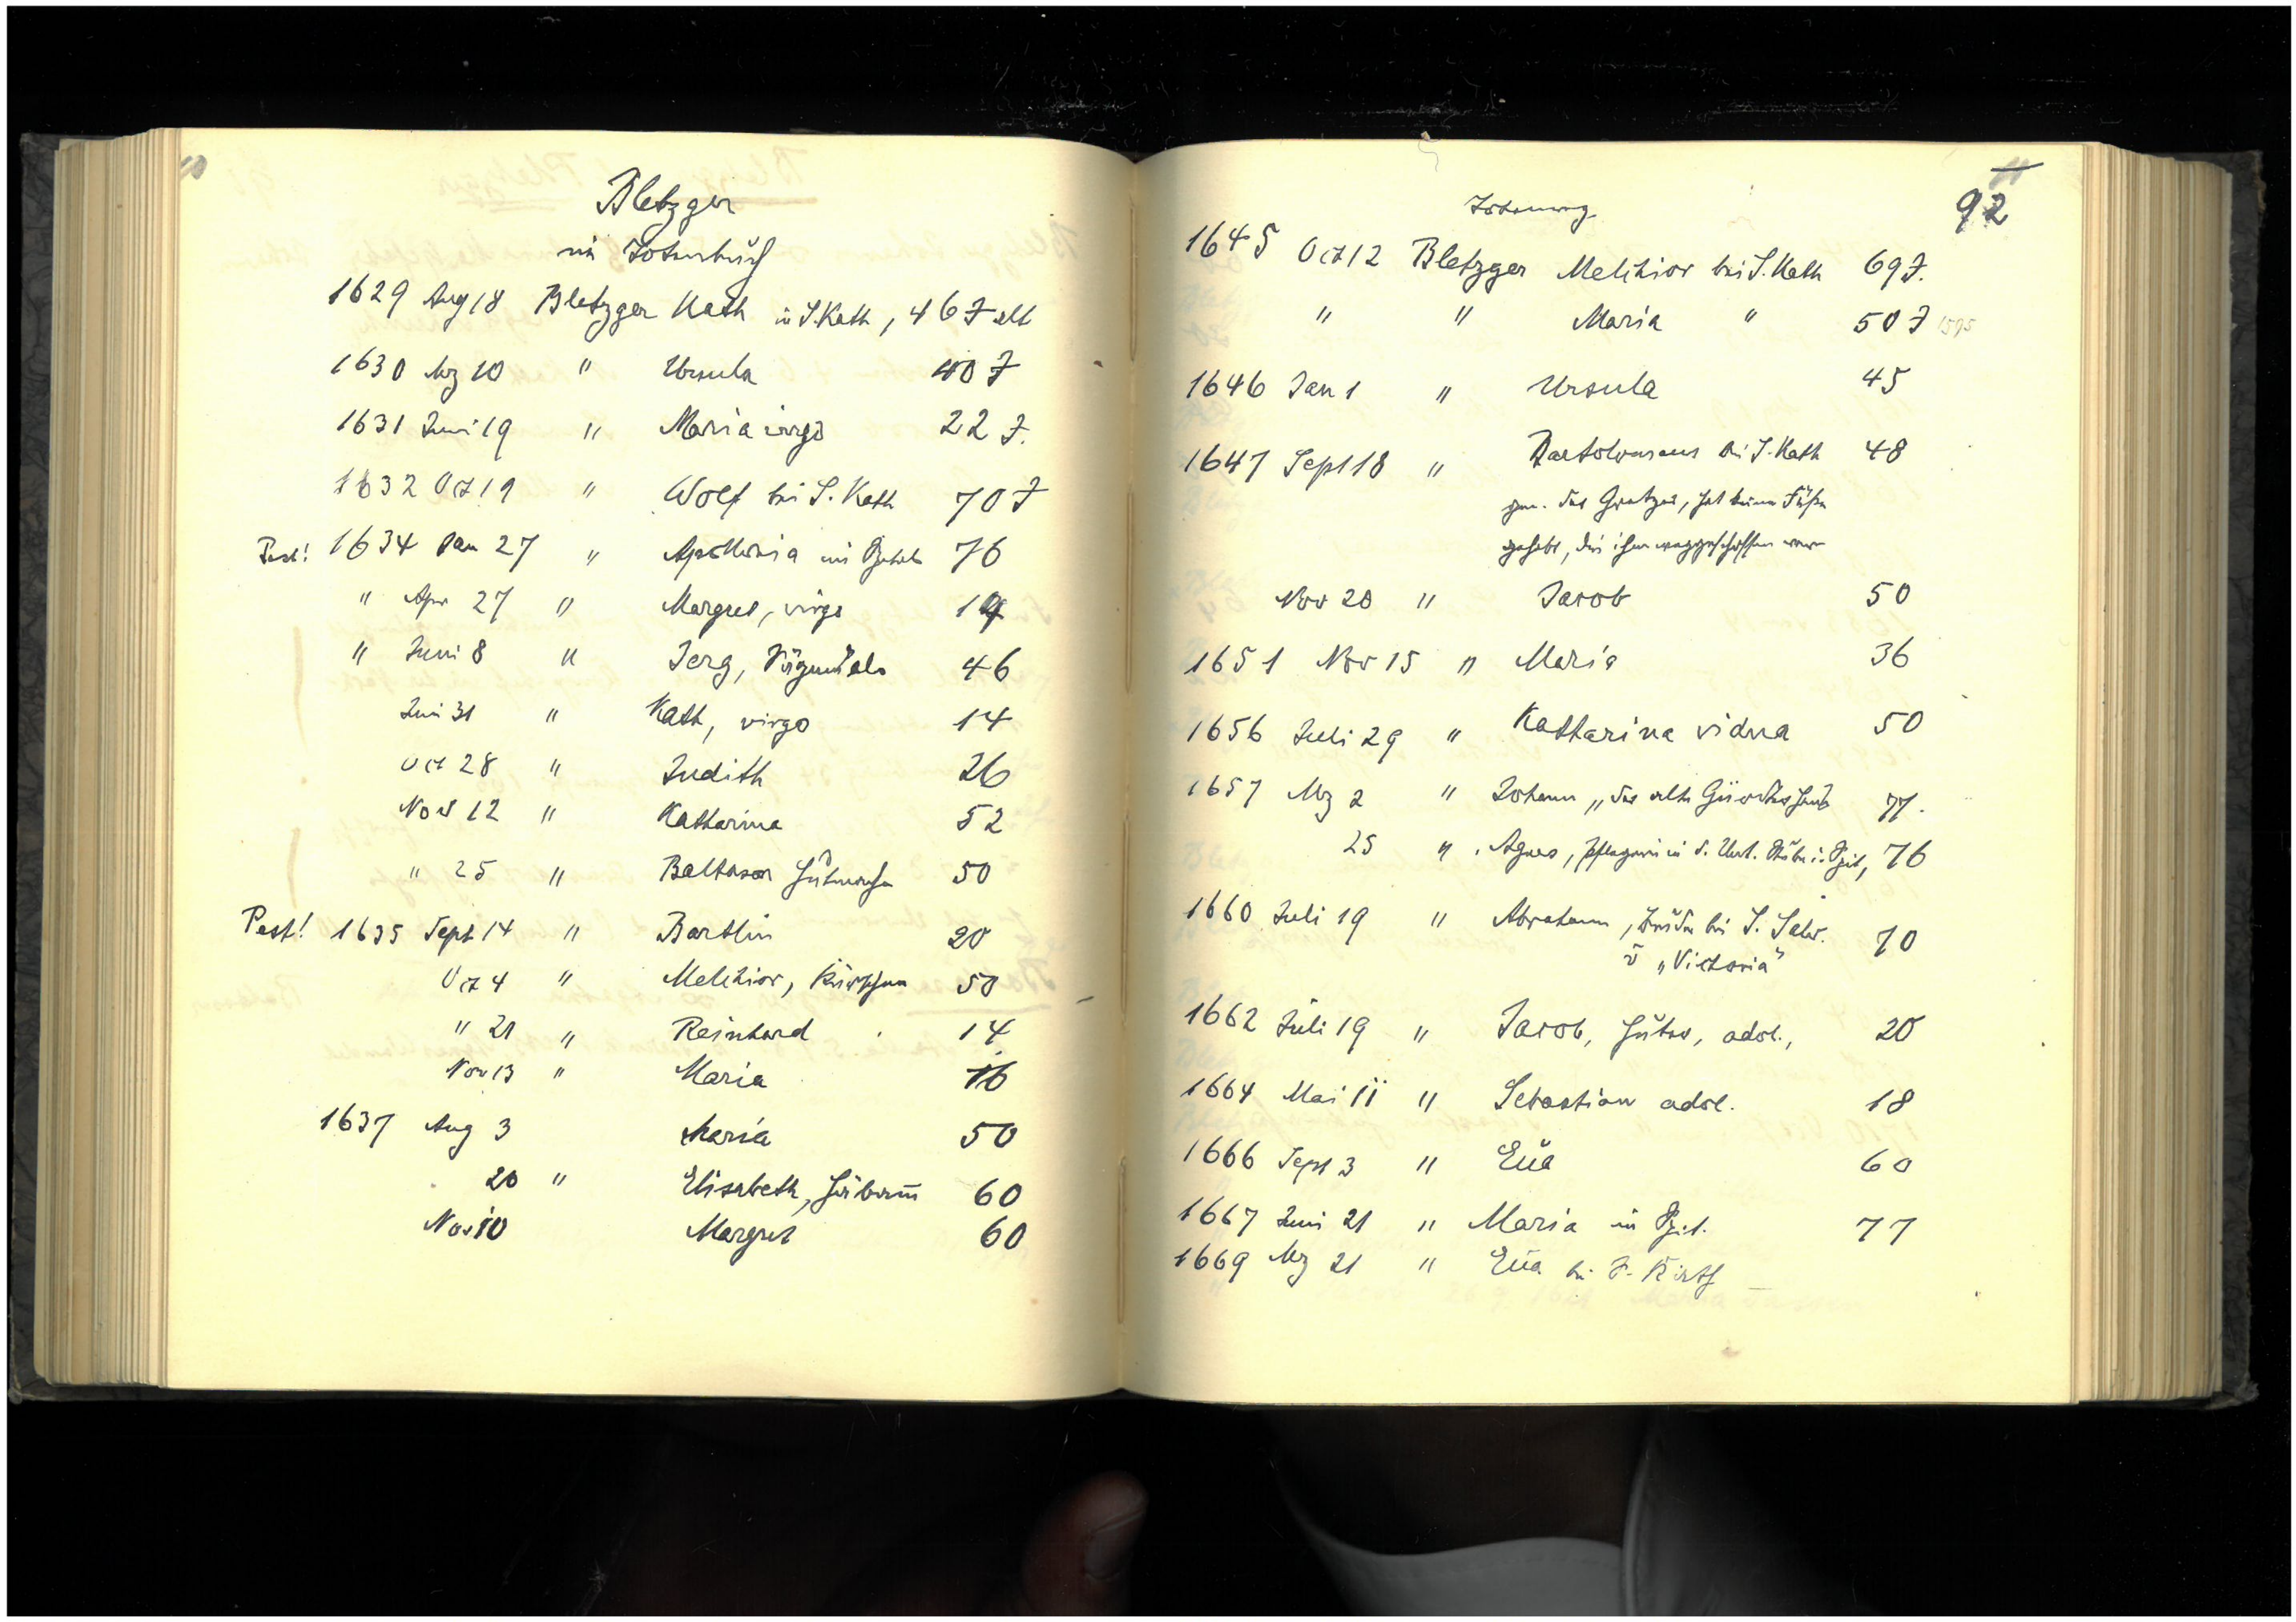 10
Bletzger
im Totenbuch
1629 Aug 18 Bletzger Kath in S. Kath, 46 J alt
1630 Mz 10 " Ursula 40 J
1631 Juni 19 " Maria virgo 22 J.
1632 Oct 19 " Wolf bei S. Kath 70 J
Pest! 1634 Jan 27 " Apollonia im Spital 76
" Apr 27 " Margret, virgo 14
" Juni 8 " Jerg, 46
Juni 31 " Kath, virgo 14
Oct 28 " Judith 26
Nov 12 " Katharina 52
" 25 " Baltasar Hutmacher 50
Pest! 1635 Sept 14 " Bartlin 20
Oct 4 " Melchior, Kürschner 50
" 21 " Reinhard 14
Nov 13 " Maria 16
1637 Aug 3 Maria 50
20 " Elisabeth, 60
Nov 10 Margret 60
92
1645 Oct 12 Bletzger Melchior bei S. Kath 69 J.
" " Maria " 50 J 1595
1646 Jan 1 " Ursula 45
1647 Sept 18 " Bartolomaeus bei S. Kath 48
gen. der, hat keine Füße
gehabt, die ihm weggeschossen waren
Nov 20 " Jacob 50
1651 Nov 15 " Maria 36
1656 Juli 29 " Katharina vidua 50
1657 Mz 2 " Johann „der alte 77.
25 " Agnes, Pflegerin in d. Unt. Stube i. Spit, 76
1660 Juli 19 " Abraham, Bruder bei S. Salv. 70
u „Victoria"
1662 Juli 19 " Jacob, Huter, adol., 20
1664 Mai 11 " Sebastian adol. 18
1666 Sept 3 " Eua 60
1667 Juni 21 " Maria im Spit. 77
1669 Mz 21 " Eua bei